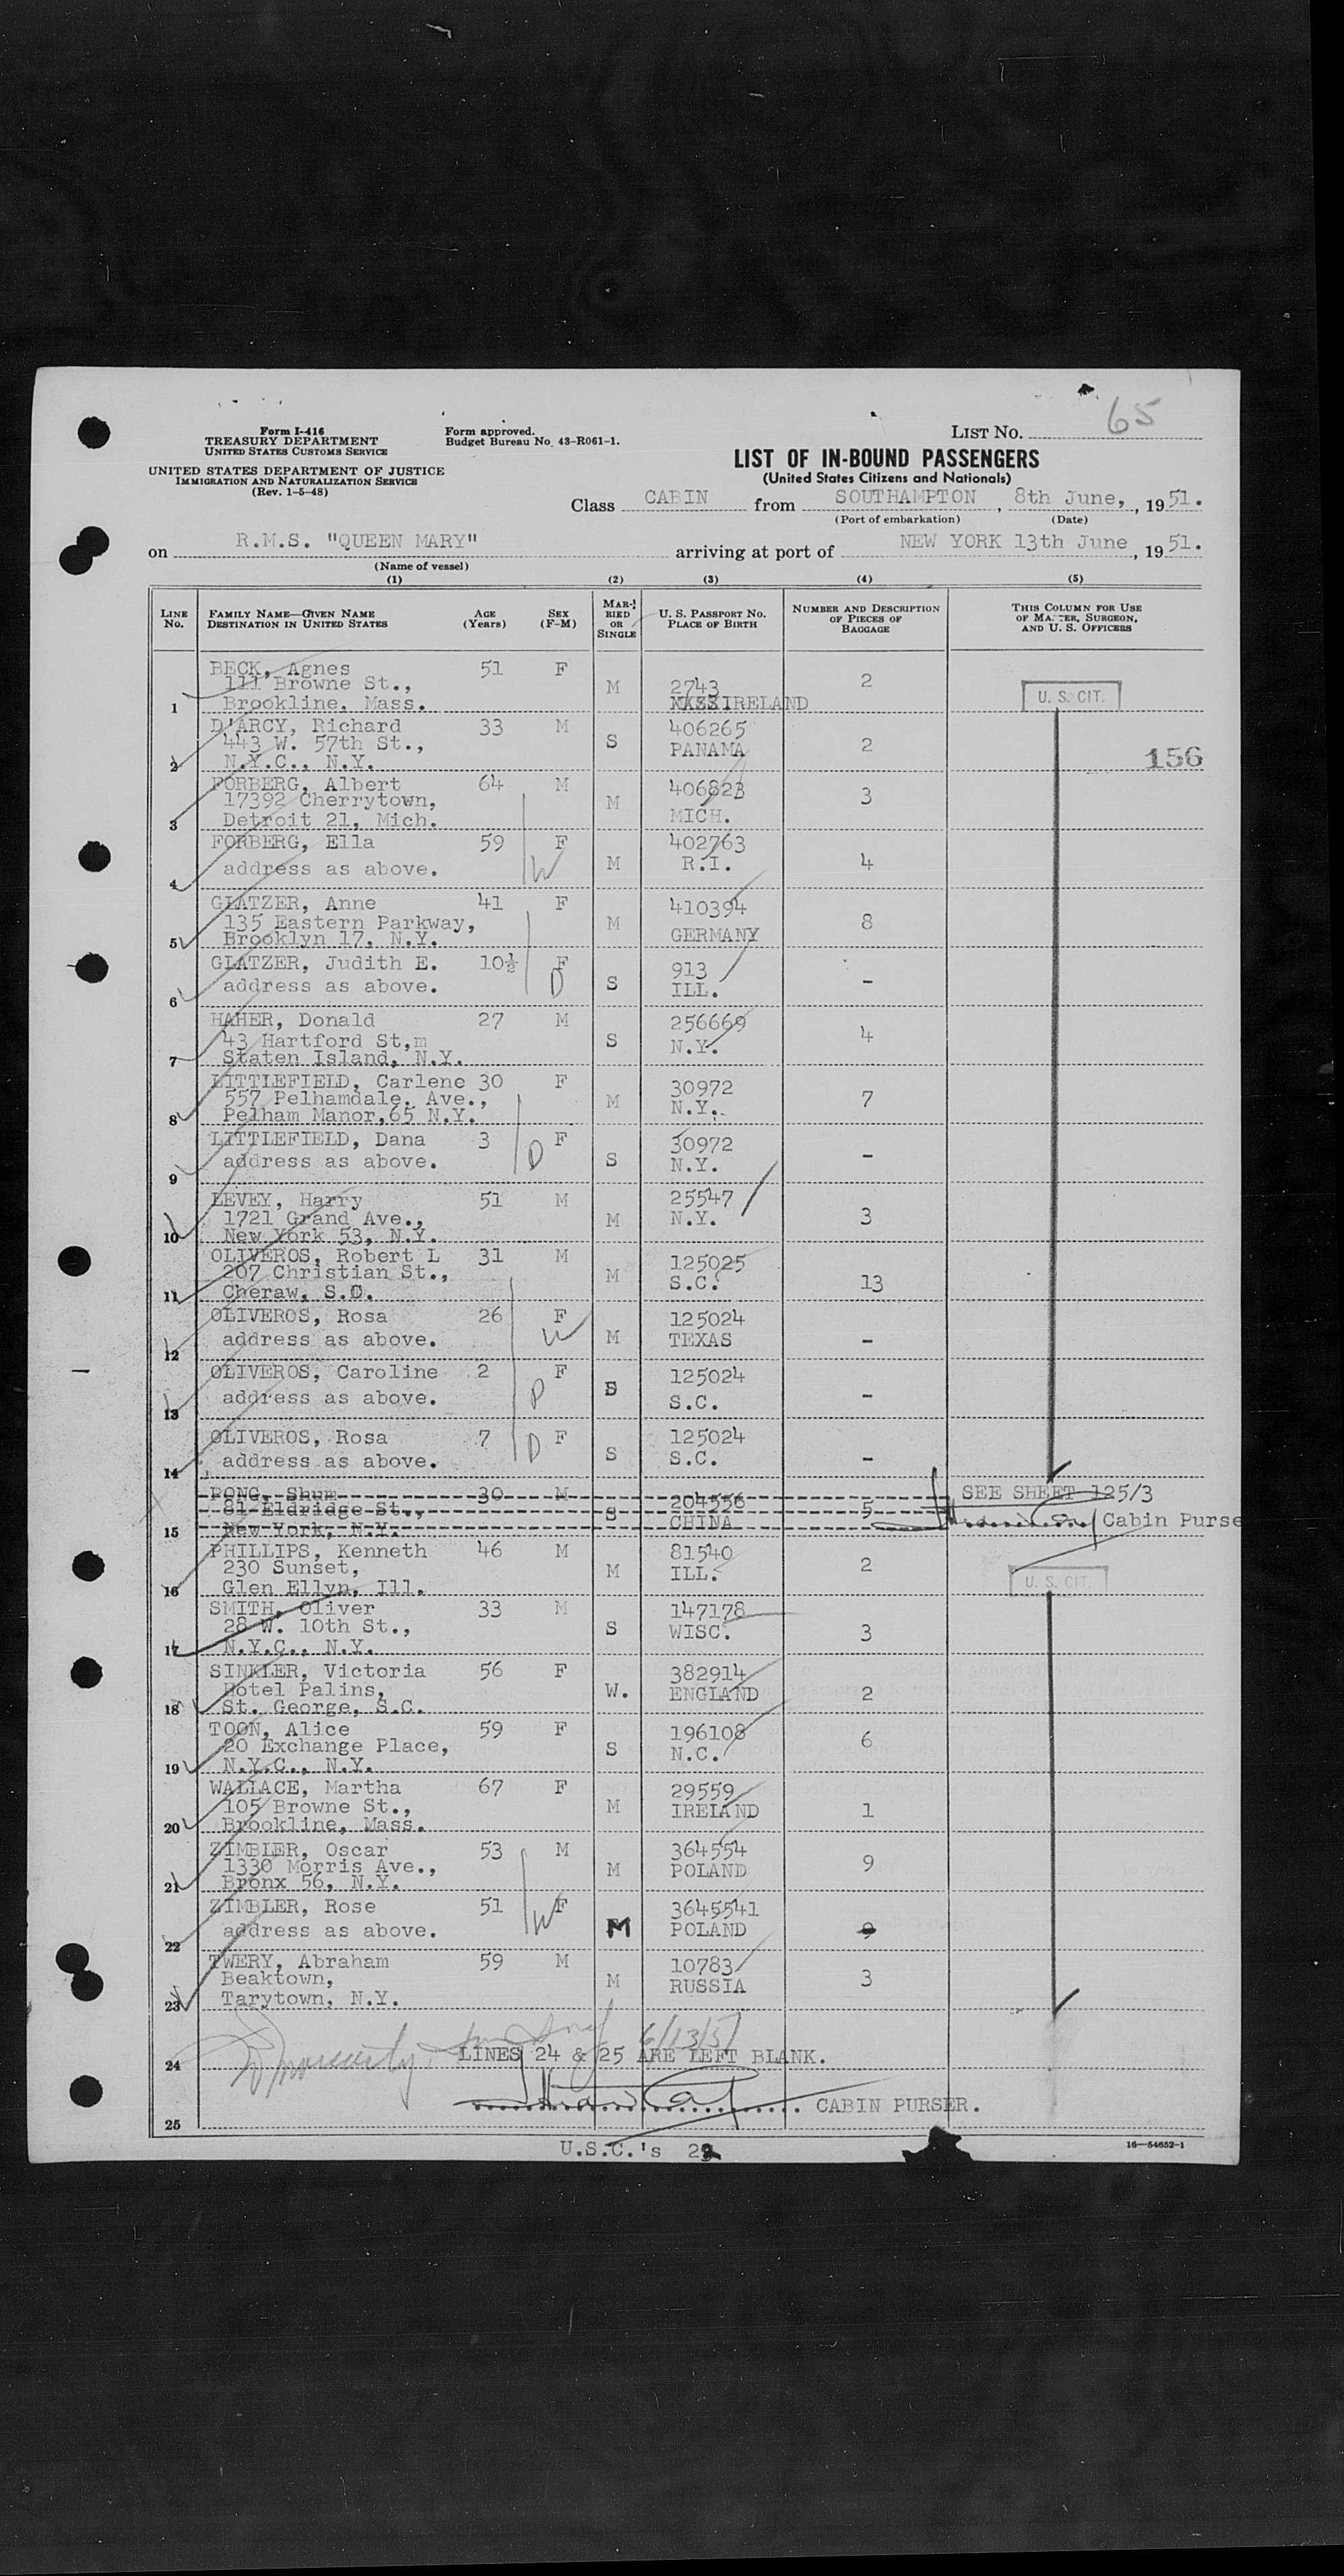 65
Form I-416
TREASURY DEPARTMENT
UNITED STATES CUSTOMS SERVICE
Form approved.
Budget Bureau No. 43-R061-1.
LIST NO.
UNITED STATES DEPARTMENT OF JUSTICE
IMMIGRATION AND NATURALIZATION SERVICE
(Rev. 1-5-48)
LIST OF IN-BOUND PASSENGERS
(United States Citizens and Nationals)
Class CABIN from SOUTHAMPTON, 8th June, , 1951.
(Port of embarkation) (Date)
on R.M.S. "QUEEN MARY" arriving at port of NEW YORK 13th June, 1951.
(Name of vessel)
(1) (2) (3) (4) (5)
LINE No. FAMILY NAME—GIVEN NAME DESTINATION IN UNITED STATES AGE (Years) SEX (F-M) MARRIED OR SINGLE U. S. PASSPORT NO. PLACE OF BIRTH NUMBER AND DESCRIPTION OF PIECES OF BAGGAGE THIS COLUMN FOR USE OF MASTER, SURGEON, AND U. S. OFFICERS
BECK, Agnes 51 F
111 Browne St., M 2743 2 U. S. CIT.
1 Brookline, Mass. IRELAND
D'ARCY, Richard 33 M 406265
443 W. 57th St., S PANAMA 2
2 N.Y.C., N.Y. 156
FORBERG, Albert 64 M 406823
17392 Cherrytown, M 3
3 Detroit 21, Mich. MICH.
FORBERG, Ella 59 F 402763
address as above. W M R.I. 4
4
GLATZER, Anne 41 F 410394
135 Eastern Parkway, M 8
5 Brooklyn 17, N.Y. GERMANY
GLATZER, Judith E. 10½ F 913
address as above. D S ILL. -
6
HAHER, Donald 27 M 256669
43 Hartford St,m S N.Y. 4
7 Staten Island, N.Y.
LITTLEFIELD, Carlene 30 F 30972
557 Pelhamdale, Ave., M N.Y. 7
8 Pelham Manor,65 N.Y.
LITTLEFIELD, Dana 3 F 30972
address as above. D S N.Y. -
9
LEVEY, Harry 51 M 25547
1721 Grand Ave., M N.Y. 3
10 New York 53, N.Y.
OLIVEROS, Robert L 31 M 125025
207 Christian St., M S.C. 13
11 Cheraw, S.C.
OLIVEROS, Rosa 26 F 125024
address as above. W M TEXAS -
12
OLIVEROS, Caroline 2 F 125024
address as above. D S S.C. -
13
OLIVEROS, Rosa 7 F 125024
address as above. D S S.C. -
14
PONG, Shum 30 M SEE SHEET 125/3
81 Eldridge St., S 204556 5
15 New York, N.Y. CHINA Cabin Purse
PHILLIPS, Kenneth 46 M 81540
230 Sunset, M ILL. 2 U. S. CIT.
16 Glen Ellyn, Ill.
SMITH, Oliver 33 M 147178
28 W. 10th St., S WISC. 3
17 N.Y.C., N.Y.
SINKLER, Victoria 56 F 382914
Hotel Palins, W. ENGLAND 2
18 St. George, S.C.
TOON, Alice 59 F 196108
20 Exchange Place, S N.C. 6
19 N.Y.C., N.Y.
WALLACE, Martha 67 F 29559
105 Browne St., M IRELAND 1
20 Brookline, Mass.
ZIMBLER, Oscar 53 M 364554
1330 Morris Ave., M POLAND 9
21 Bronx 56, N.Y.
ZIMBLER, Rose 51 F 3645541
address as above. W M POLAND 9
22
TWERY, Abraham 59 M 10783
Beaktown, M RUSSIA 3
23 Tarytown, N.Y.
6/13/51
24 LINES 24 & 25 ARE LEFT BLANK.
CABIN PURSER.
25
U.S.C.'s 22
16—54652-1